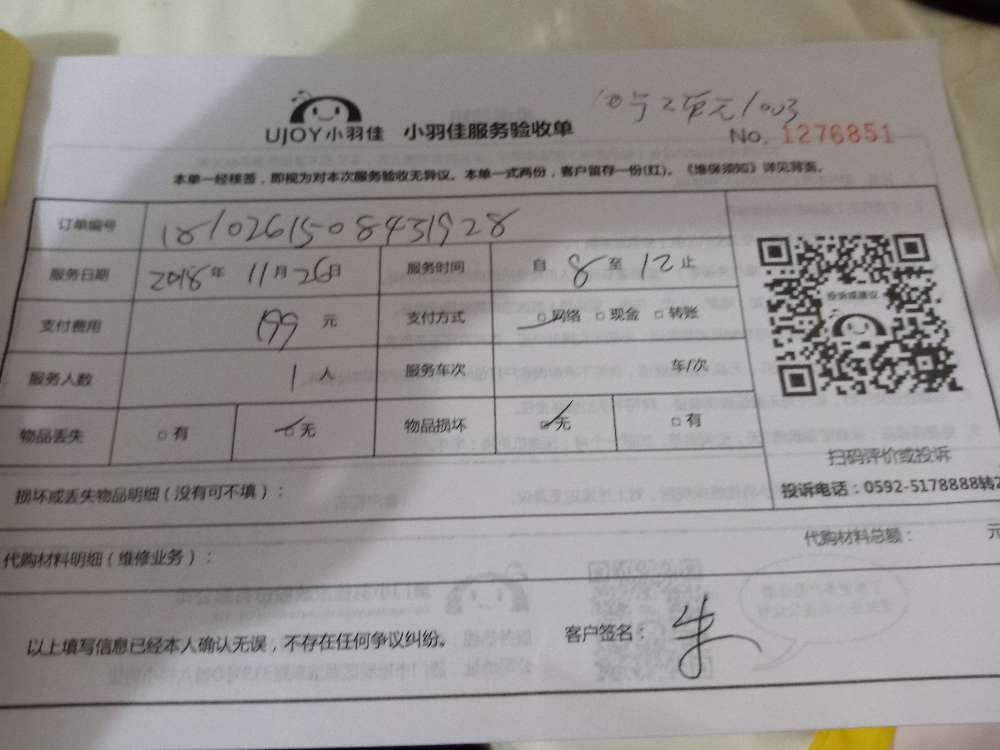 10号2单元1003
UJOY小羽佳 小羽佳服务验收单
No. 1276851
本单一经核签，即视为对本次服务验收无异议。本单一式两份，客户留存一份(红)。《维保须知》详见背面。
订单编号 1810261508431928
服务日期 2018年 11月26日 服务时间 自 8 至 12 止
支付费用 199 元 支付方式 □网络 □现金 □转账
服务人数 1人 服务车次 车/次
物品丢失 □有 □无 物品损坏 □无 □有
投诉或建议
扫码评价或投诉
损坏或丢失物品明细（没有可不填）：
投诉电话：0592-5178888转2
代购材料明细（维修业务）：
代购材料总额： 元
以上填写信息已经本人确认无误，不存在任何争议纠纷。
客户签名：